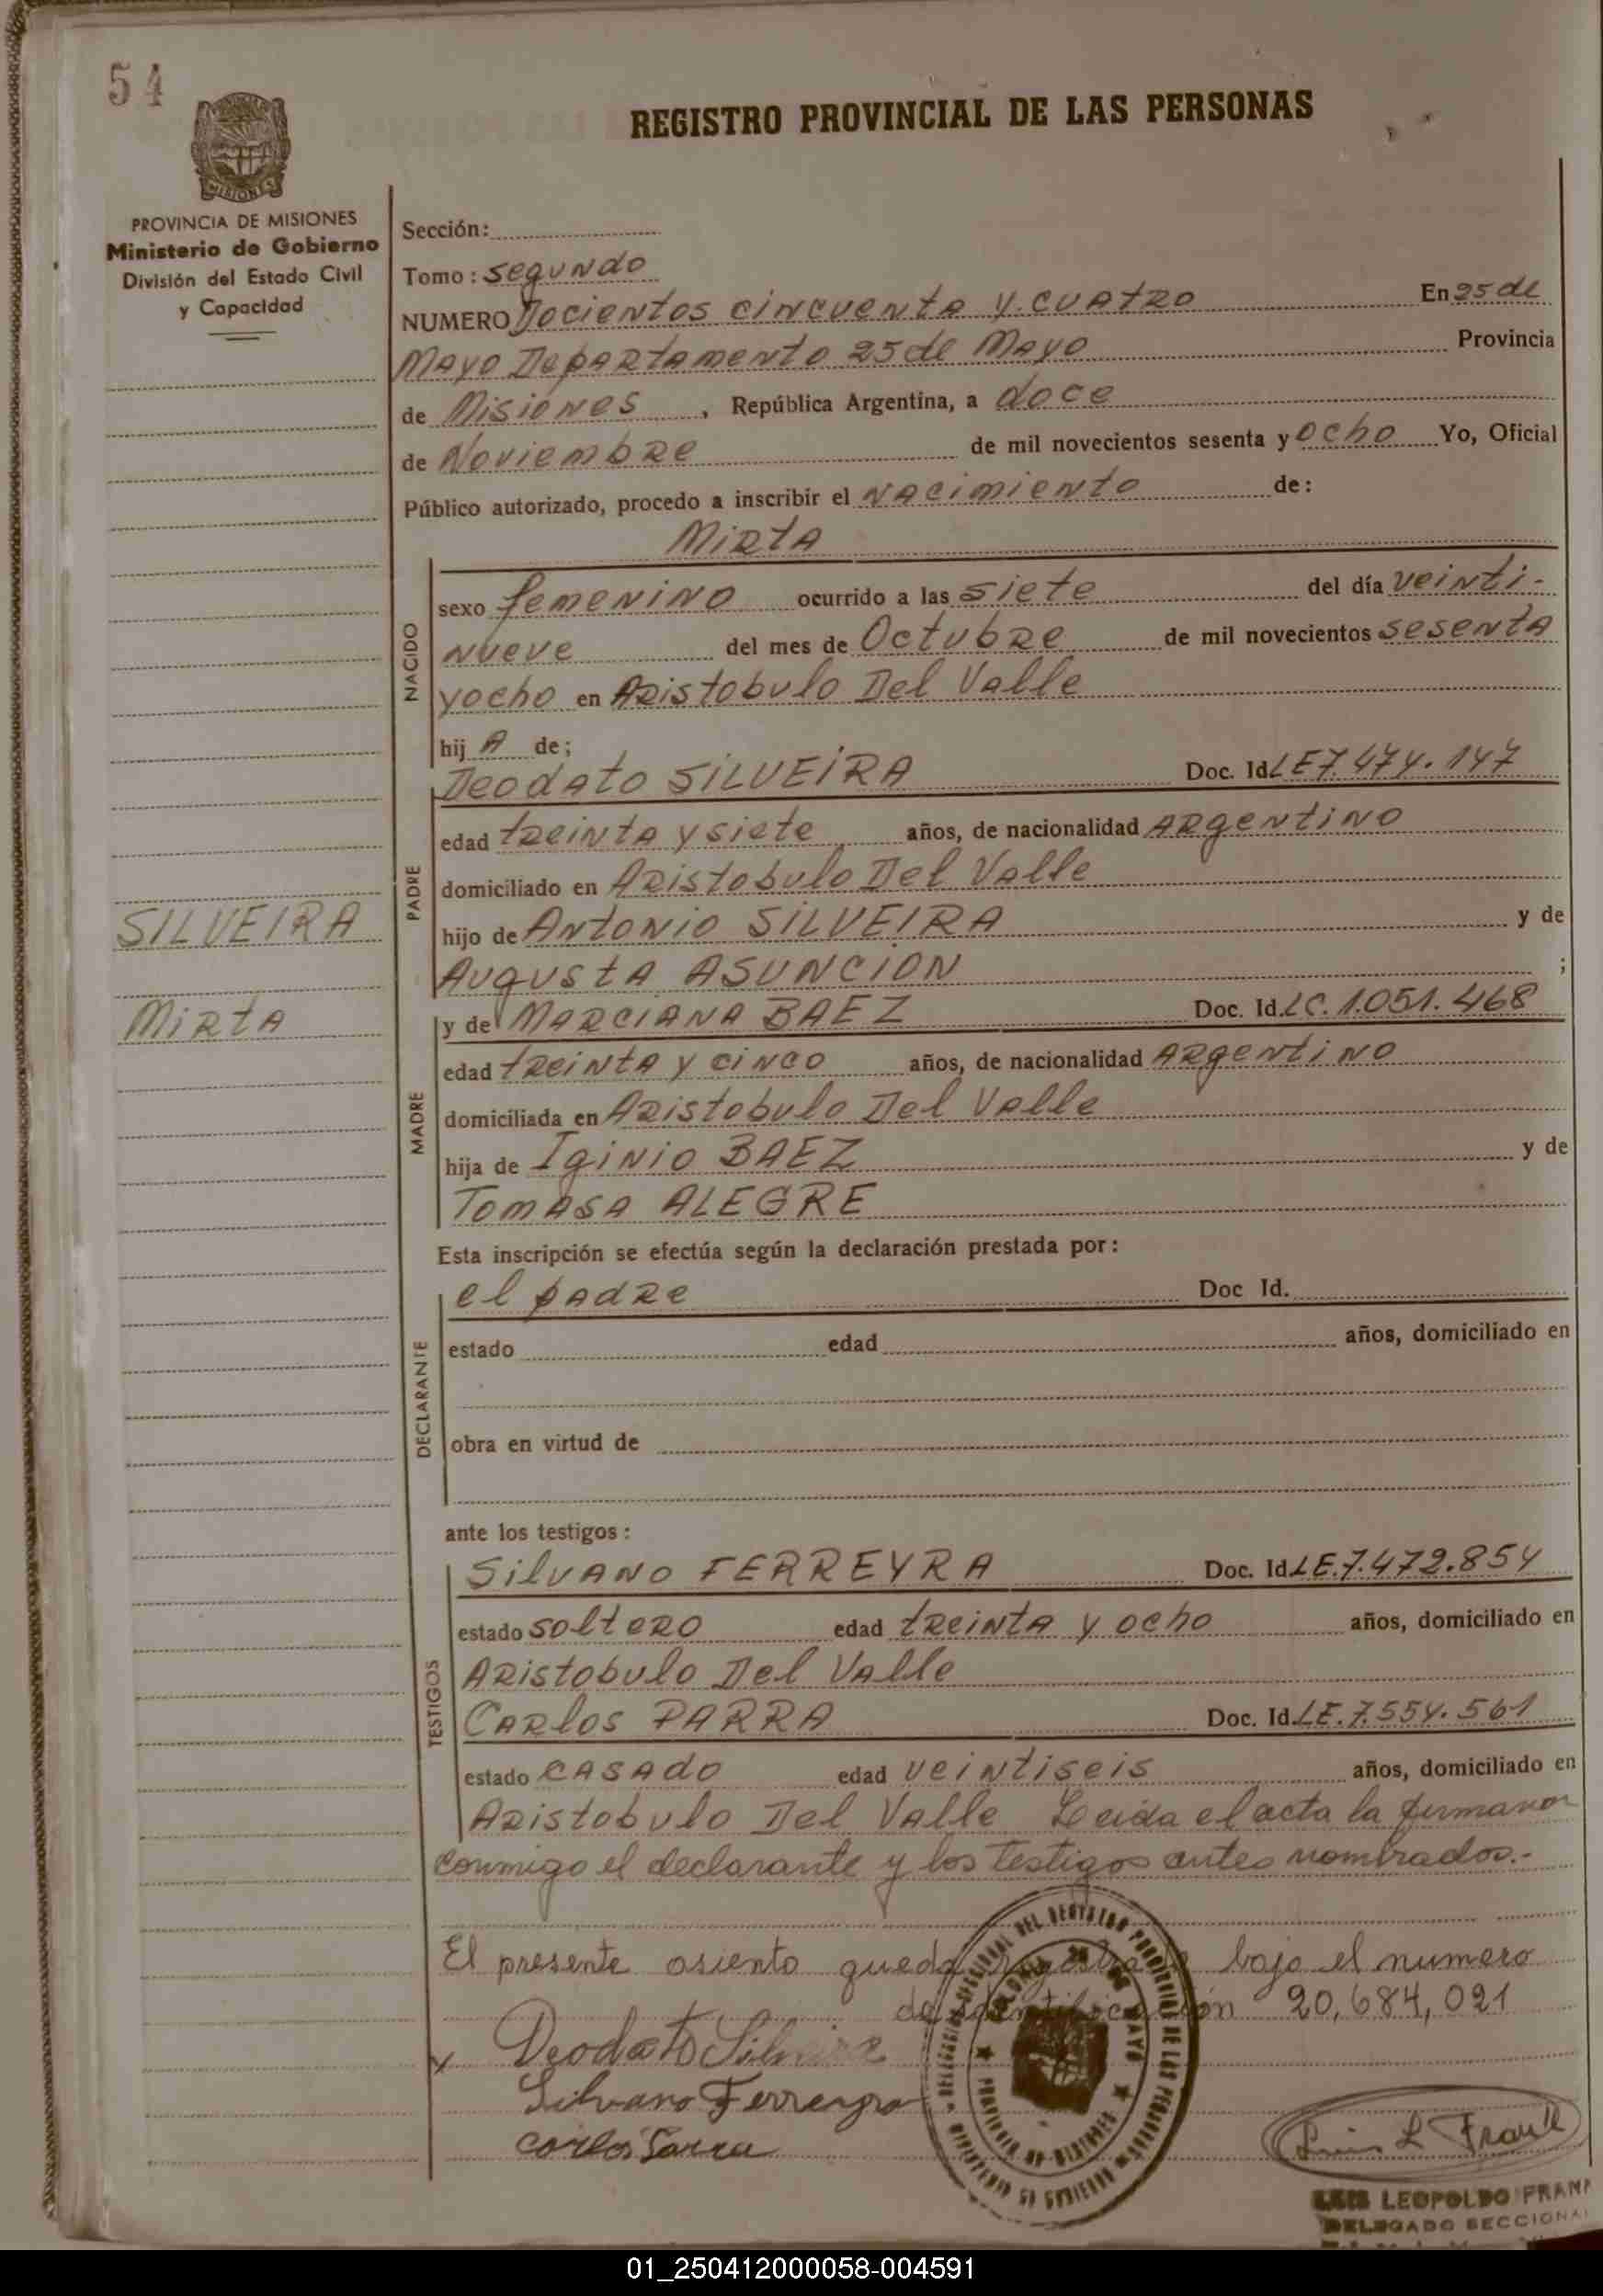 54
REGISTRO PROVINCIAL DE LAS PERSONAS
MISIONES
PROVINCIA DE MISIONES
Ministerio de Gobierno
División del Estado Civil
y Capacidad
Sección:
Tomo: segundo
NUMERO Docientos cincuenta y cuatro En 25 de
Mayo Departamento 25 de Mayo Provincia
de Misiones, República Argentina, a doce
de Noviembre de mil novecientos sesenta y ocho Yo, Oficial
Público autorizado, procedo a inscribir el nacimiento de:
Mirta
NACIDO
sexo femenino ocurrido a las siete del día veinti-
nueve del mes de Octubre de mil novecientos sesenta
yocho en Aristobulo Del Valle
hij A de;
Deodato SILVEIRA Doc. Id LE7.474.147
PADRE
edad treinta y siete años, de nacionalidad Argentino
domiciliado en Aristobulo Del Valle
hijo de Antonio SILVEIRA y de
Augusta ASUNCION ;
SILVEIRA
Mirta
y de MARCIANA BAEZ Doc. Id. LC. 1.051.468
MADRE
edad treinta y cinco años, de nacionalidad Argentino
domiciliada en Aristobulo Del Valle
hija de Iginio BAEZ y de
TOMASA ALEGRE
Esta inscripción se efectúa según la declaración prestada por:
el padre Doc Id.
DECLARANTE
estado edad años, domiciliado en
obra en virtud de
ante los testigos:
Silvano FERREYRA Doc. Id LE.7.472.854
TESTIGOS
estado soltero edad treinta y ocho años, domiciliado en
Aristobulo Del Valle
Carlos PARRA Doc. Id. LE.7.554.561
estado CASADO edad veintiseis años, domiciliado en
Aristobulo Del Valle Leida el acta la firmaron
conmigo el declarante y los testigos antes nombrados.-
El presente asiento queda registrado bajo el numero
de identificación 20,684,021
x Deodato Silveira
Silvano Ferreyra
Carlos Parra
Luis L Frank
LUIS LEOPOLDO FRANK
DELEGADO SECCIONAL
01_250412000058-004591